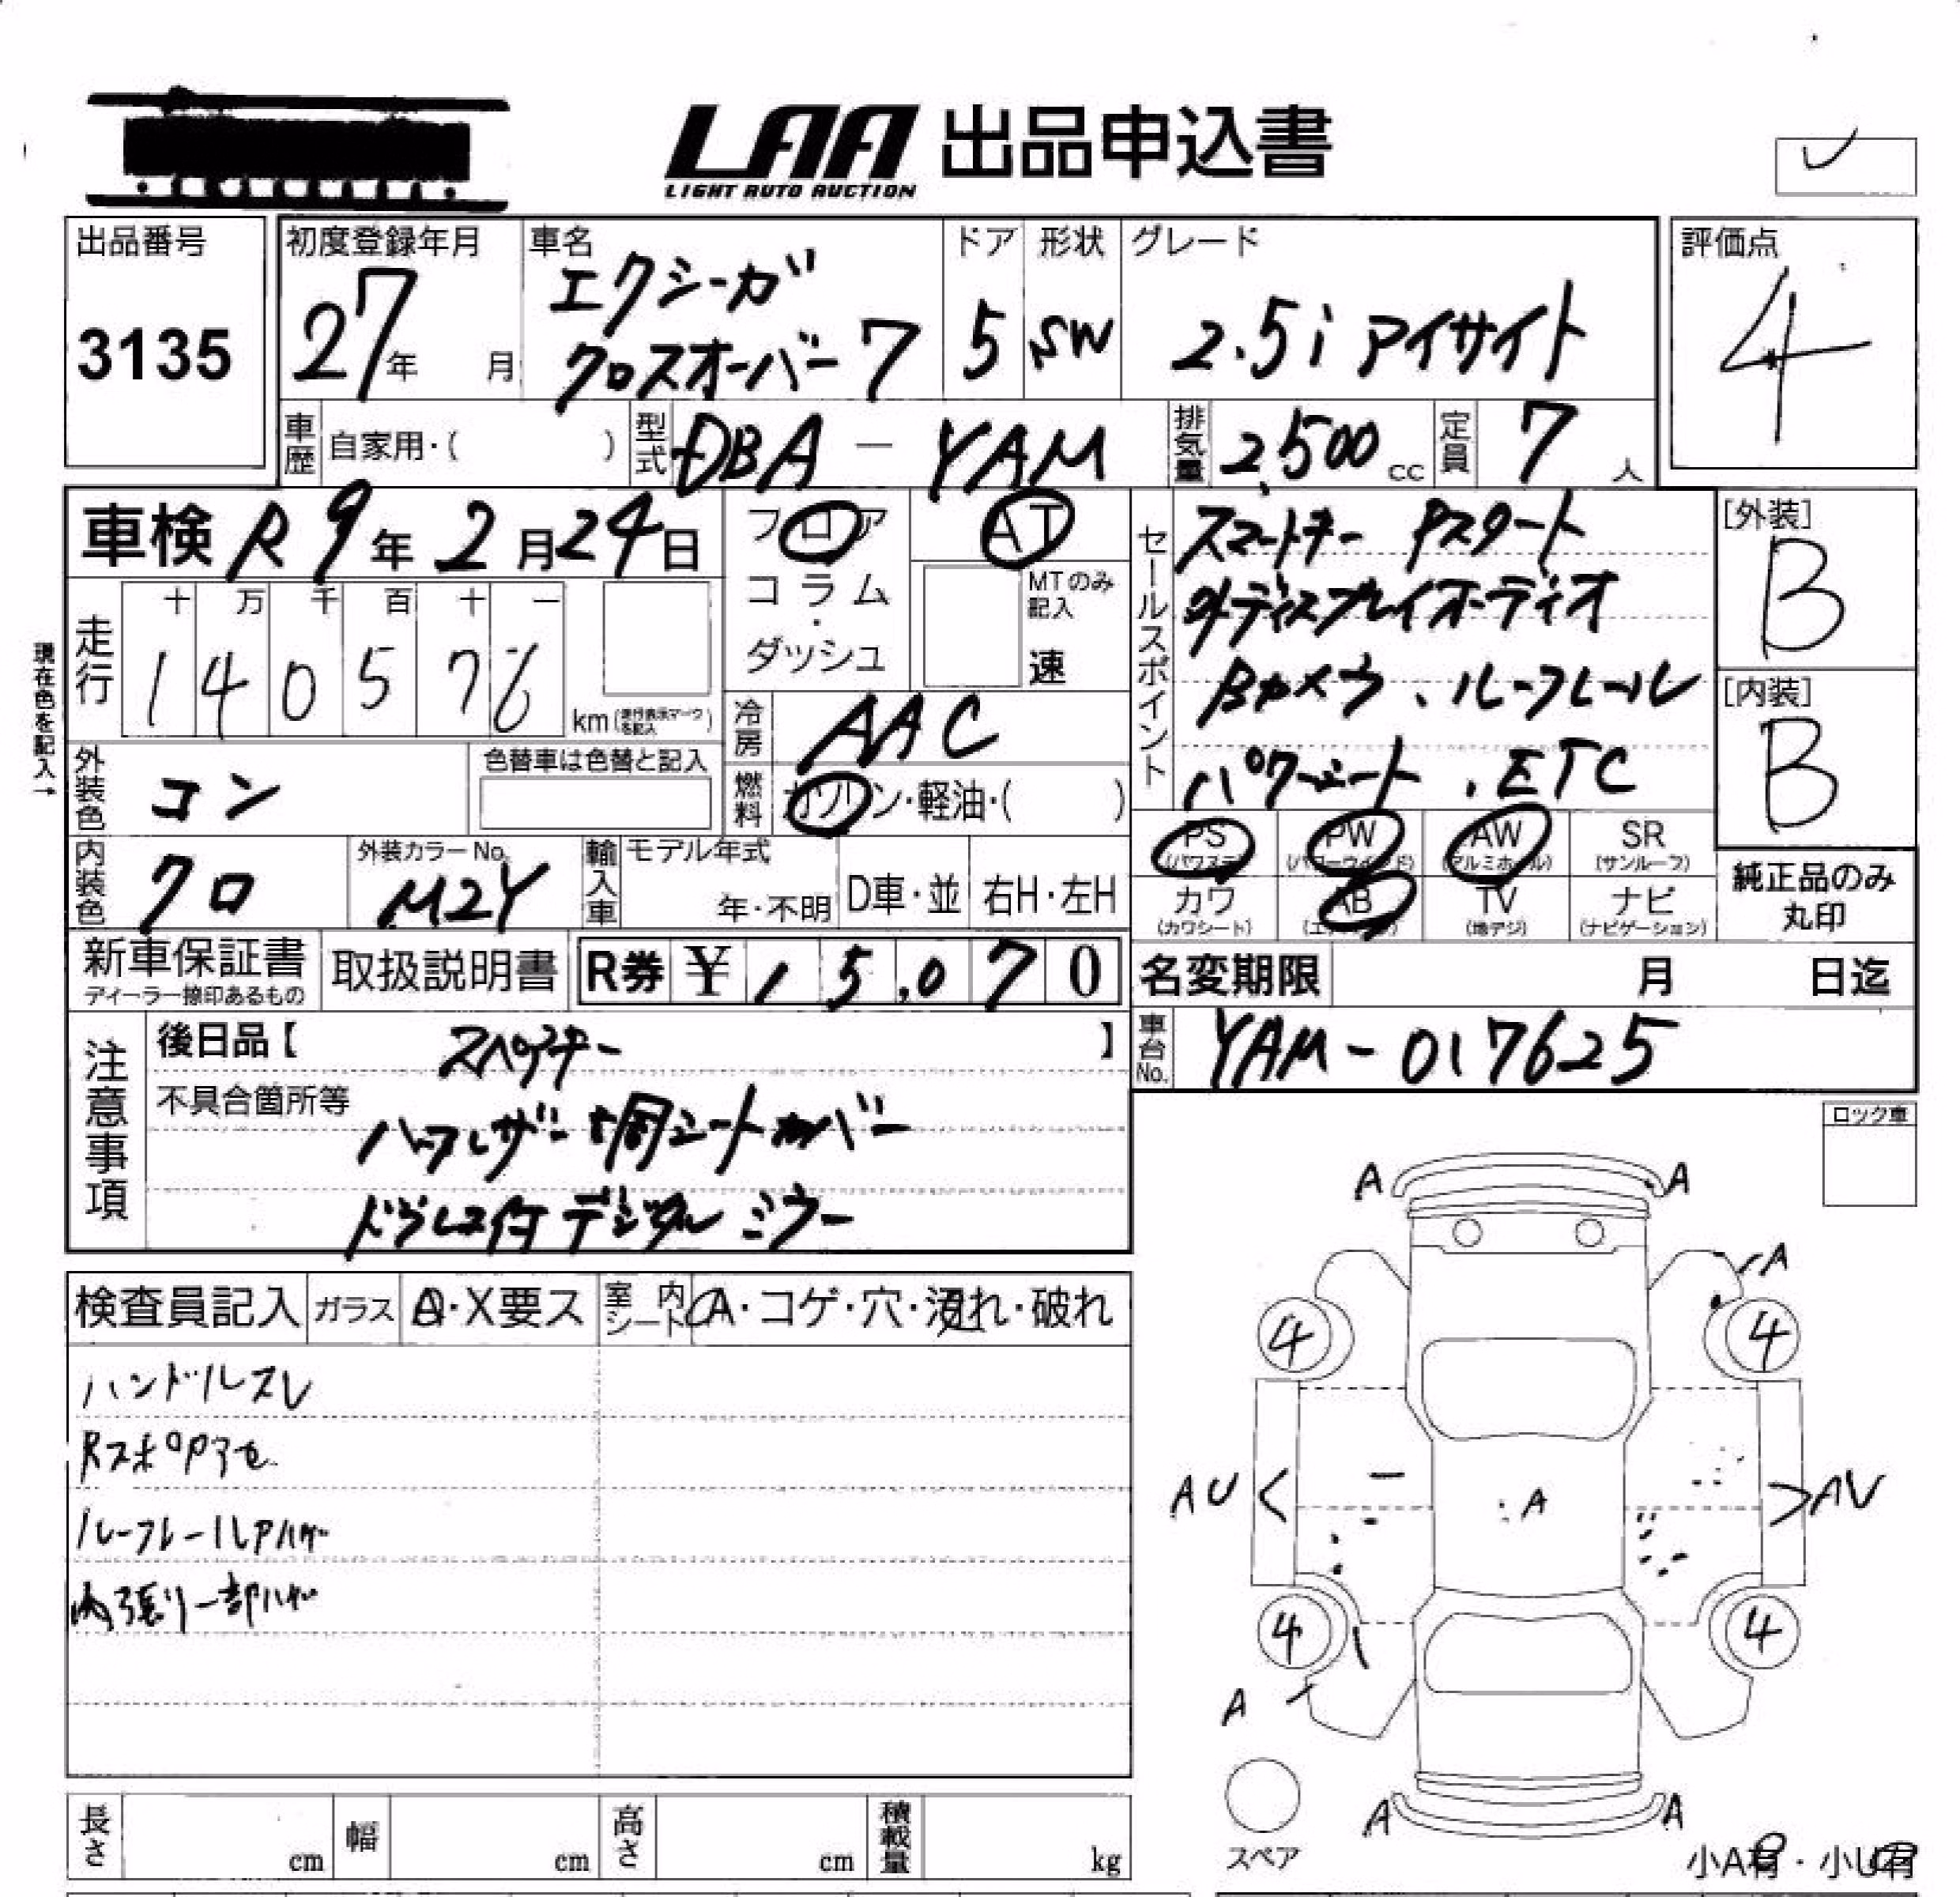 LAA 出品申込書
LIGHT AUTO AUCTION
出品番号
3135
初度登録年月
27年 月
車名
エクシーガ
クロスオーバー7
ドア
5
形状
SW
グレード
2.5i アイサイト
評価点
4
車歴 自家用・( )
型式 DBA-YAM
排気量 2,500 cc
定員 7 人
車検 R9年2月24日
フロア
コラム
・
ダッシュ
AT
MTのみ記入
速
現在色を記入→
走行
十 万 千 百 十 一
1 4 0 5 7 6
km (走行表示マークを記入)
冷房 AAC
燃料 ガソリン・軽油・( )
セールスポイント
スマートキー Pスタート
外ディスプレイオーディオ
Bカメラ、ルーフレール
パワーシート、ETC
[外装]
B
[内装]
B
外装色 コン
色替車は色替と記入
内装色 クロ
外装カラーNo.
M2Y
輸入車
モデル年式
年・不明
D車・並
右H・左H
PS
(パワステ)
PW
(パワーウインド)
AW
(アルミホイール)
SR
(サンルーフ)
カワ
(カワシート)
AB
(エアバッグ)
TV
(地デジ)
ナビ
(ナビゲーション)
純正品のみ
丸印
新車保証書
ディーラー捺印あるもの
取扱説明書
R券 ¥15,070
名変期限 月 日迄
車台No. YAM-017625
注意事項
後日品【 スペアキー 】
不具合箇所等
ハーフレザー調シートカバー
ドラレコ付デジタルミラー
ロック車
検査員記入
ガラス A・X要ス
室内シート A・コゲ・穴・汚れ・破れ
ハンドルスレ
Rスポイラアセ
ルーフレールアハゲ
内張り一部ハゲ
A A
A
4 4
AU
A
AU
4 4
A
A A
スペア
小A有・小U有
長さ cm
幅 cm
高さ cm
積載量 kg